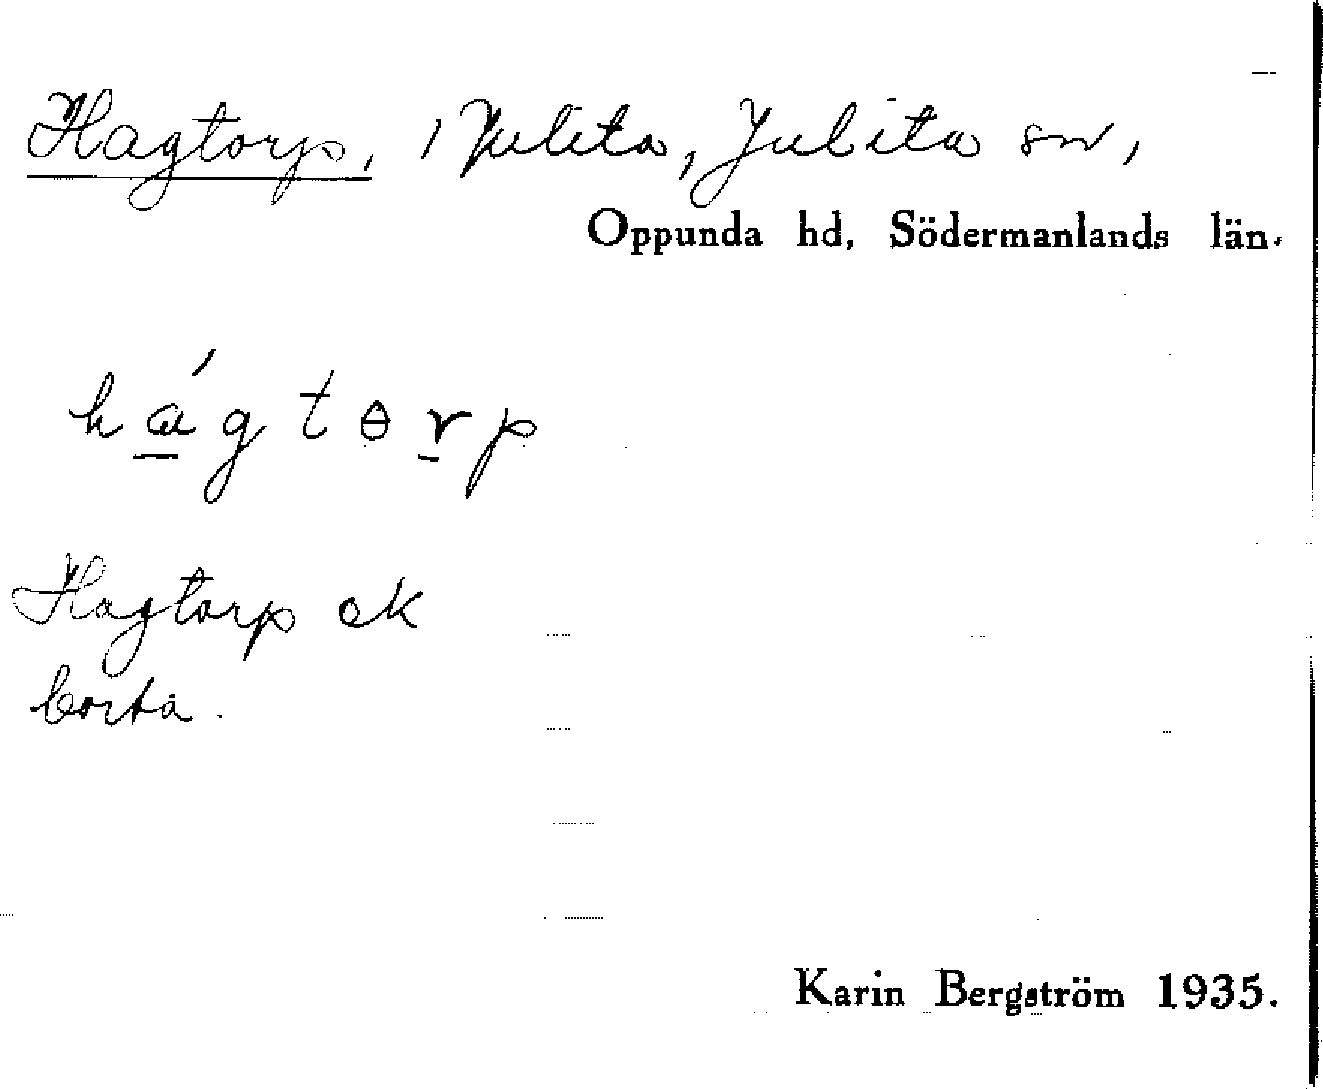 Hagtorp, 1 Julita, Julita sn,
Oppunda hd, Södermanlands län.
há̱gtɵṟp
Hagtorp ek
borta.
Karin Bergström 1935.